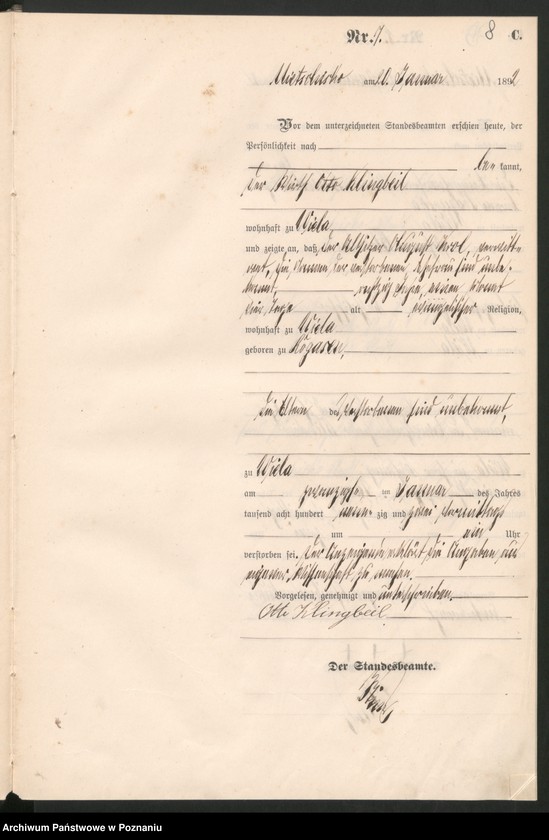 Nr. 7. 8 C.
Mietschisko am 20. Januar 1892
Vor dem unterzeichneten Standesbeamten erschien heute, der
Persönlichkeit nach
be kannt,
der Wirth Otto Klingbeil
wohnhaft zu Wiela
und zeigte an, daß der Altsitzer August
die Namen der verstorbenen Ehefrau sind unbe-
kannt, einen Monat
vier Tage alt evangelischer Religion,
wohnhaft zu Wiela
geboren zu Rogasen,
die Eltern des Verstorbenen sind unbekannt,
zu Wiela
am zwanzigsten Januar des Jahres
tausend acht hundert neun zig und zwei Vormittags
um ein Uhr
verstorben sei. Der Anzeigende erklärt die Angaben aus
eigener Wissenschaft zu machen.
Vorgelesen, genehmigt und unterschrieben.
Otto Klingbeil
Der Standesbeamte.
Archiwum Państwowe w Poznaniu